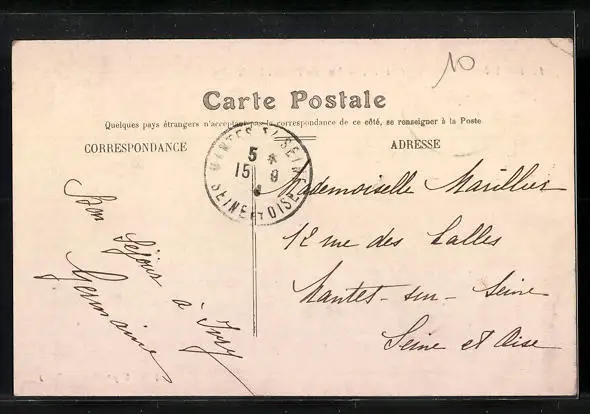 10
Carte Postale
Quelques pays étrangers n'acceptant pas la correspondance de ce côté, se renseigner à la Poste
CORRESPONDANCE
ADRESSE
MANTES S/ SEINE
5 *
15 9
SEINE ET OISE
Bon Séjour à Ivry
Germaine
Mademoiselle Marillier
12 rue des Halles
Mantes-sur-Seine
Seine et Oise